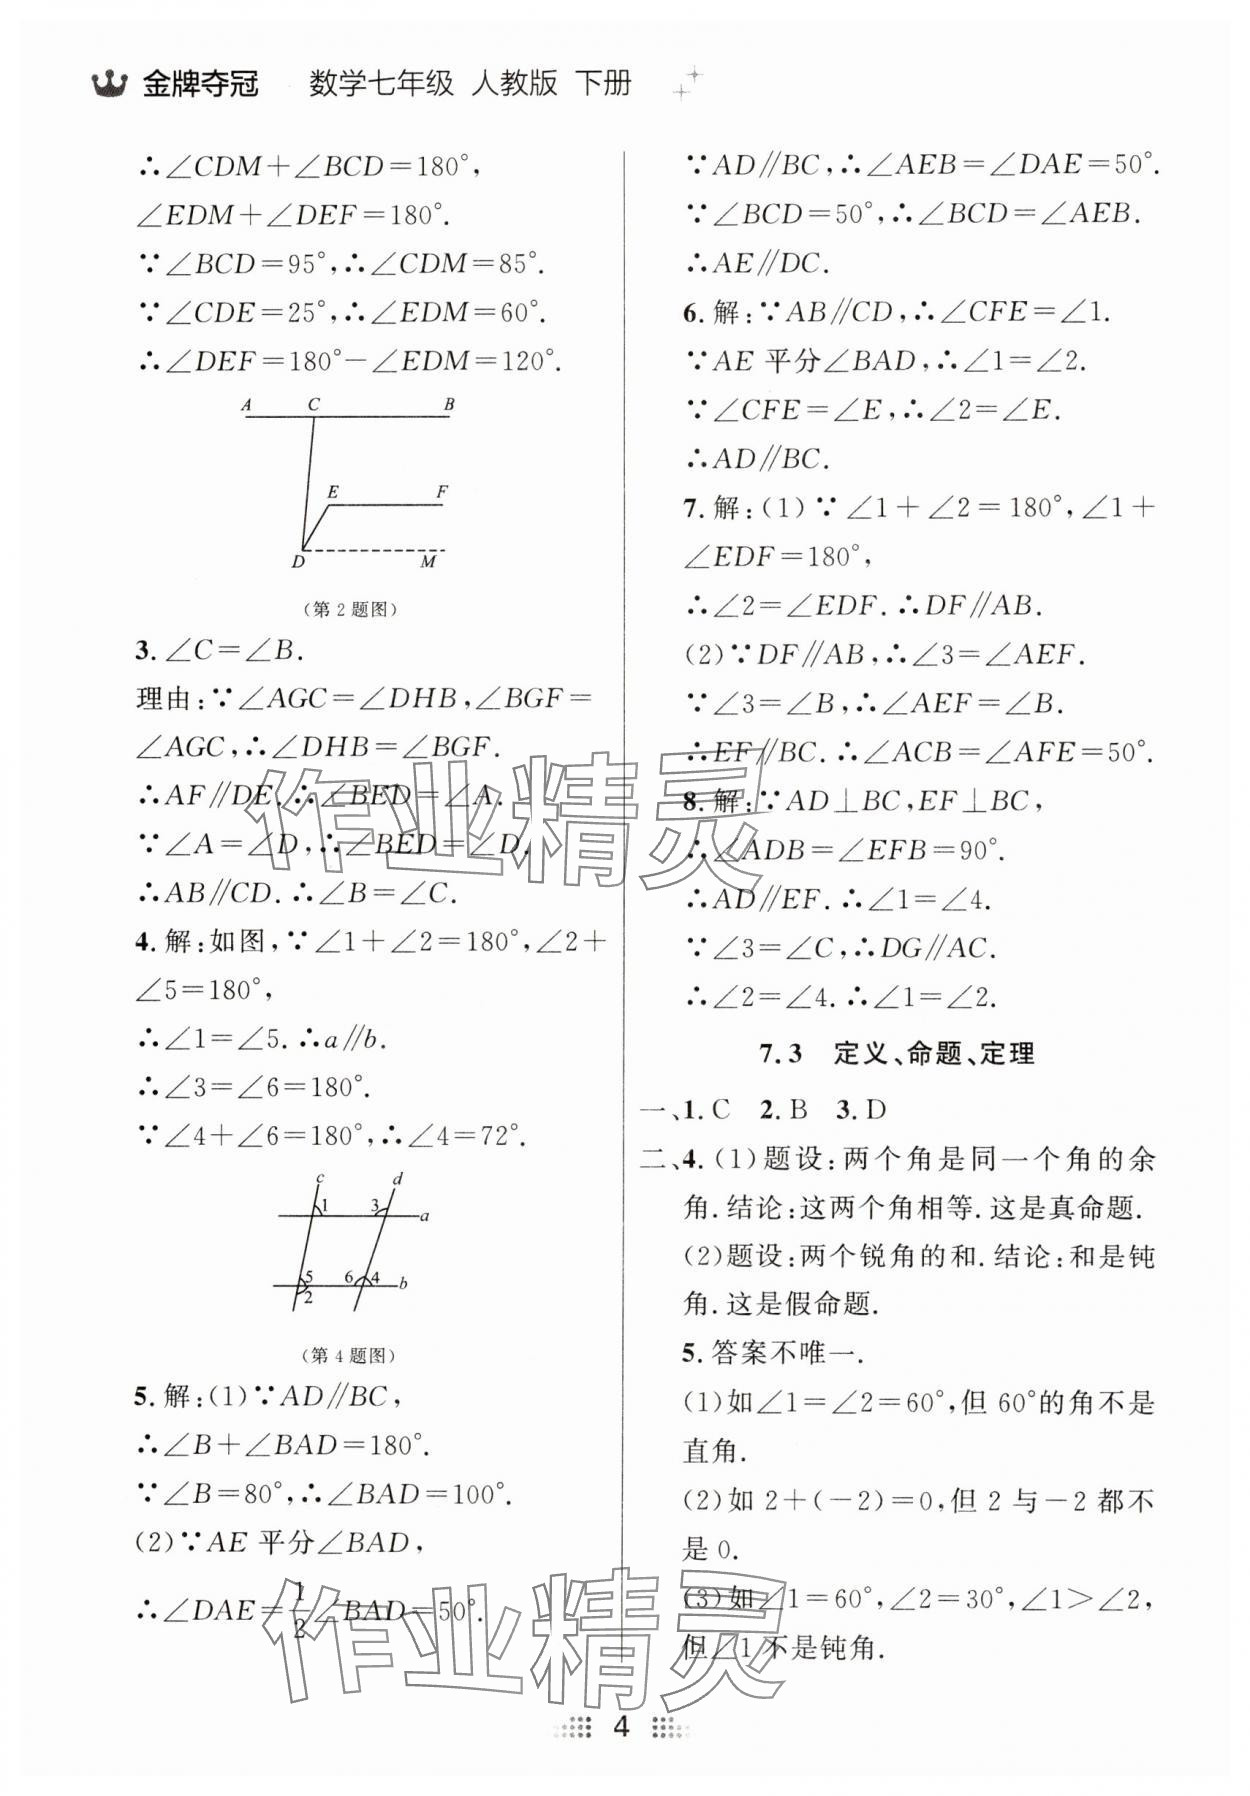 金牌夺冠 数学七年级 人教版 下册
∴∠CDM+∠BCD=180°,
∠EDM+∠DEF=180°.
∵∠BCD=95°,∴∠CDM=85°.
∵∠CDE=25°,∴∠EDM=60°.
∴∠DEF=180°-∠EDM=120°.
A C B
E F
D M
(第2题图)
3.∠C=∠B.
理由:∵∠AGC=∠DHB,∠BGF=
∠AGC,∴∠DHB=∠BGF.
∴AF∥DE.∴∠BED=∠A.
∵∠A=∠D,∴∠BED=∠D.
∴AB∥CD.∴∠B=∠C.
4.解:如图,∵∠1+∠2=180°,∠2+
∠5=180°,
∴∠1=∠5.∴a∥b.
∴∠3=∠6=180°.
∵∠4+∠6=180°,∴∠4=72°.
c d
1 3 a
5 6 4 b
2
(第4题图)
5.解:(1)∵AD∥BC,
∴∠B+∠BAD=180°.
∵∠B=80°,∴∠BAD=100°.
(2)∵AE平分∠BAD,
∴∠DAE=1/2∠BAD=50°.
∵AD∥BC,∴∠AEB=∠DAE=50°.
∵∠BCD=50°,∴∠BCD=∠AEB.
∴AE∥DC.
6.解:∵AB∥CD,∴∠CFE=∠1.
∵AE平分∠BAD,∴∠1=∠2.
∵∠CFE=∠E,∴∠2=∠E.
∴AD∥BC.
7.解:(1)∵∠1+∠2=180°,∠1+
∠EDF=180°,
∴∠2=∠EDF.∴DF∥AB.
(2)∵DF∥AB,∴∠3=∠AEF.
∵∠3=∠B,∴∠AEF=∠B.
∴EF∥BC.∴∠ACB=∠AFE=50°.
8.解:∵AD⊥BC,EF⊥BC,
∴∠ADB=∠EFB=90°.
∴AD∥EF.∴∠1=∠4.
∵∠3=∠C,∴DG∥AC.
∴∠2=∠4.∴∠1=∠2.
7.3 定义、命题、定理
一、1.C 2.B 3.D
二、4.(1)题设:两个角是同一个角的余
角.结论:这两个角相等.这是真命题.
(2)题设:两个锐角的和.结论:和是钝
角.这是假命题.
5.答案不唯一.
(1)如∠1=∠2=60°,但60°的角不是
直角.
(2)如2+(-2)=0,但2与-2都不
是0.
(3)如∠1=60°,∠2=30°,∠1>∠2,
但∠1不是钝角.
作业精灵
作业精灵
4